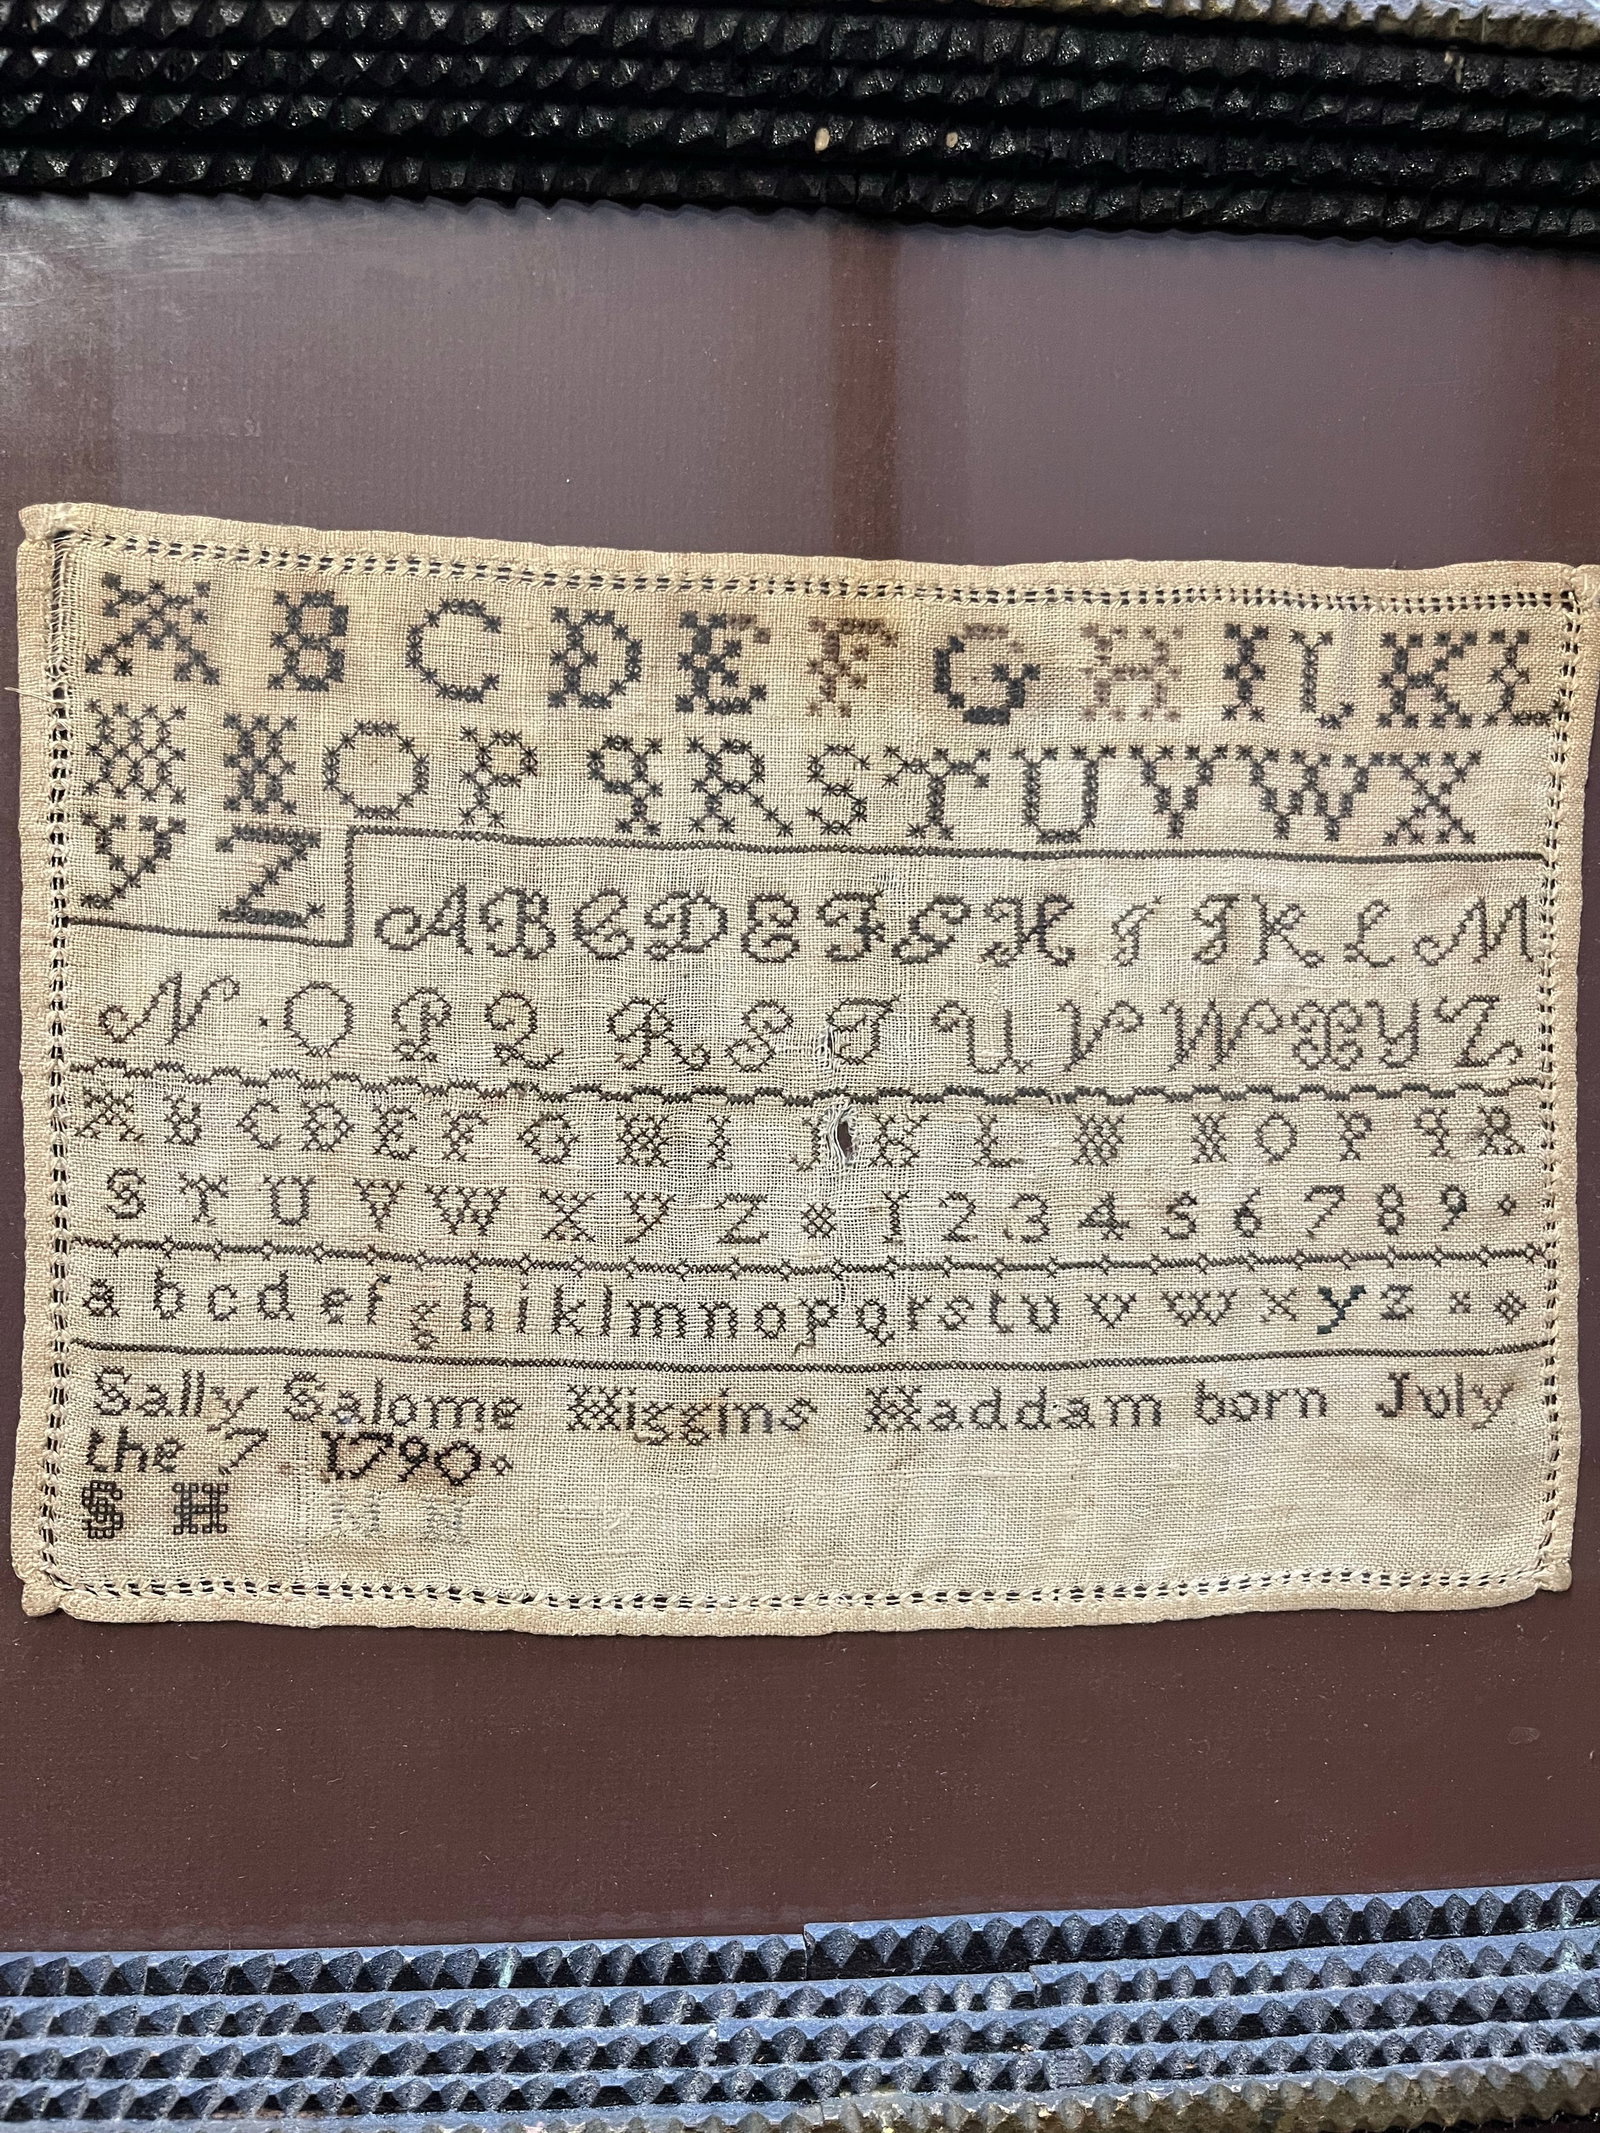 A B C D E F G H I J K L
M N O P q R S T U V W X
Y Z
A B C D E F G H I J K L M
N · O P Q R S T U V W X Y Z
A B C D E F G H I J K L M N O P q R
S T U V W X Y Z 1 2 3 4 5 6 7 8 9
a b c d e f g h i k l m n o p q r s t u v w x y z
Sally Salome Higgins Haddam born July
the 7 1790
S H